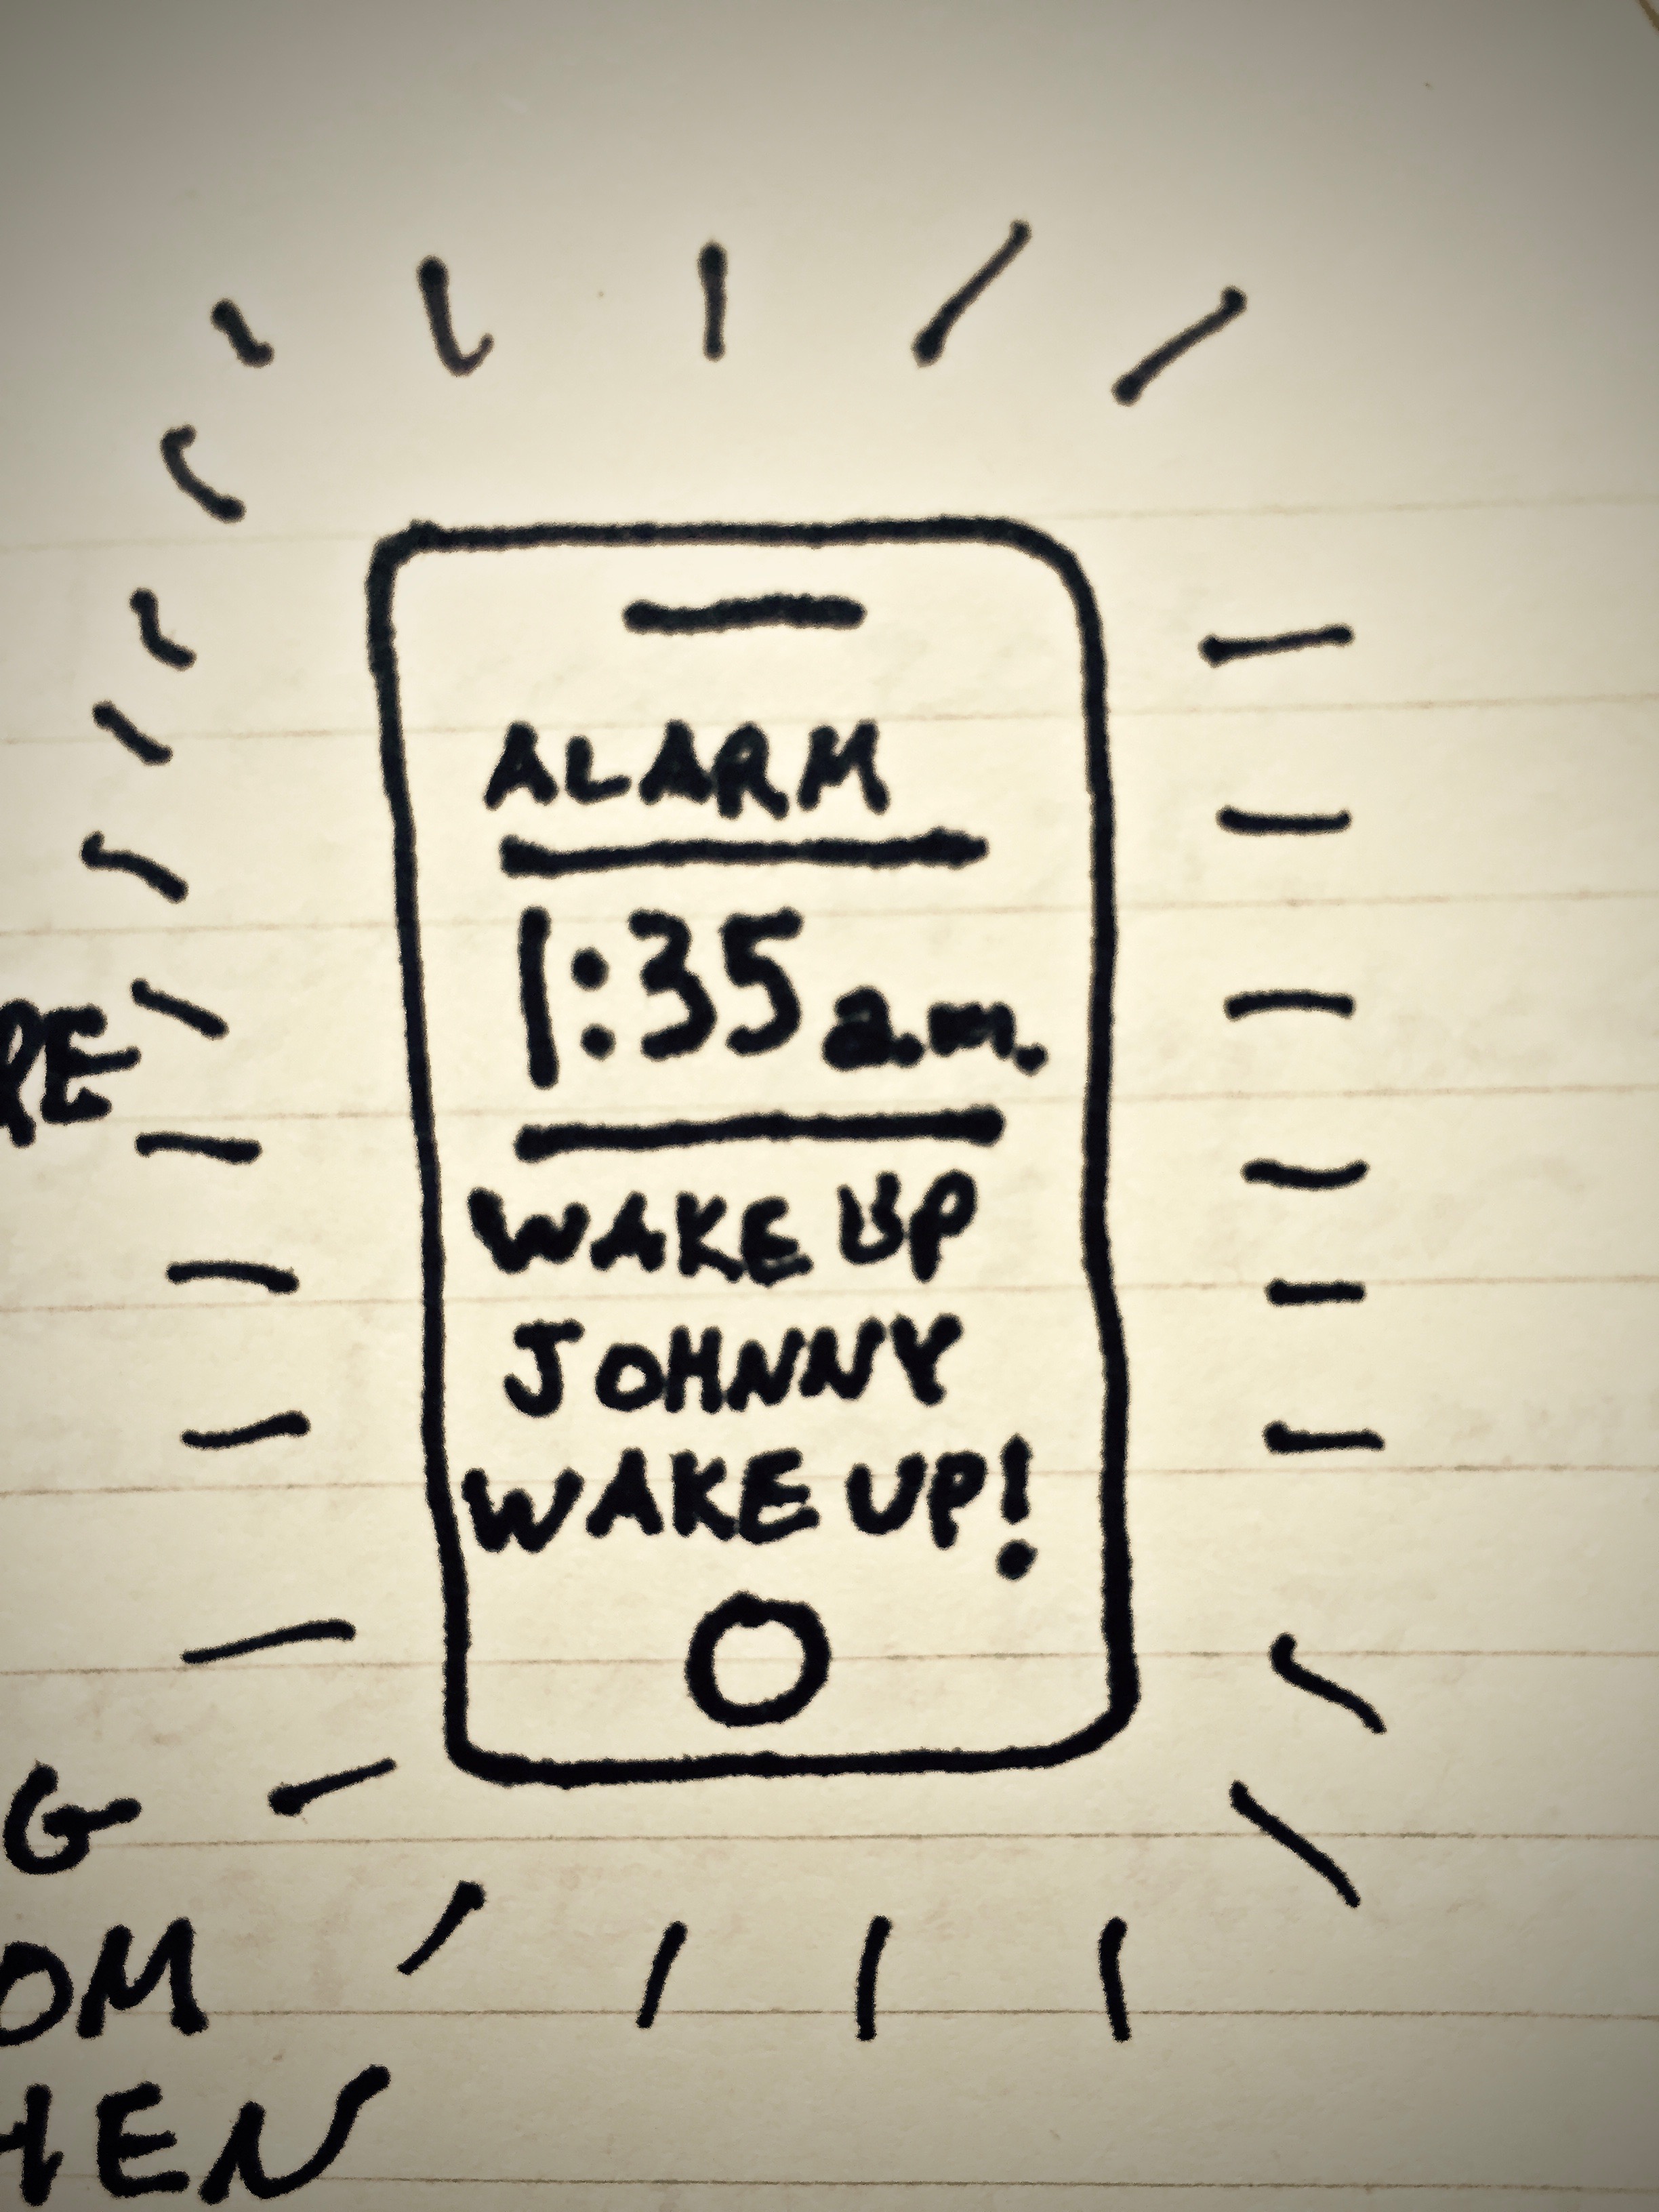 ALARM
1:35 a.m.
WAKE UP
JOHNNY
WAKE UP!
RE
G
OM
HEN